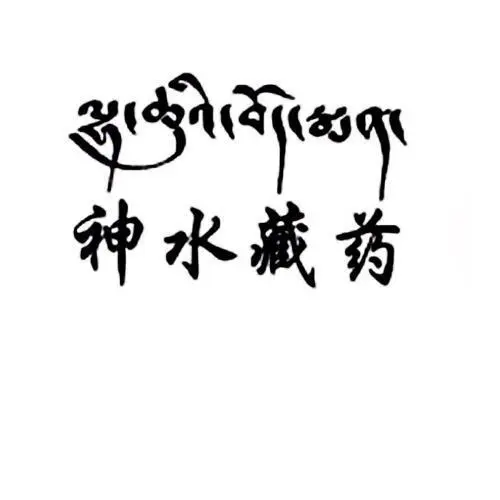 ལྷ་ཆུའི་བོད་སྨན།
神水藏药